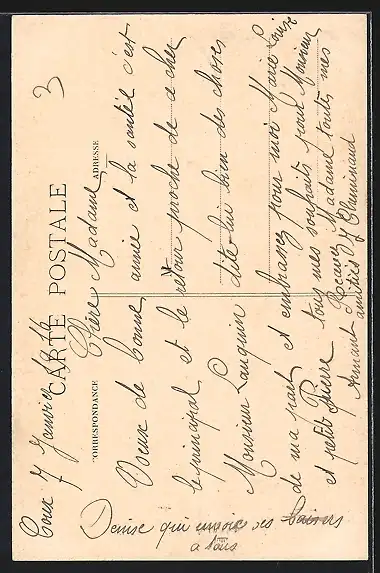 3
CARTE POSTALE
CORRESPONDANCE
ADRESSE
7 Janvier 1916
Chère Madame
Voeux de bonne année et la santé c'est
le principal et le retour proche de ce cher
Monsieur Lauquin dite-lui bien des choses
de ma part et embrassez pour moi Marie Louise
et petit Pierre tous mes souhaits pour Monsieur
Armant Recevez Madame toutes mes
amitiés
Denise qui envoie ses baisers
a tous